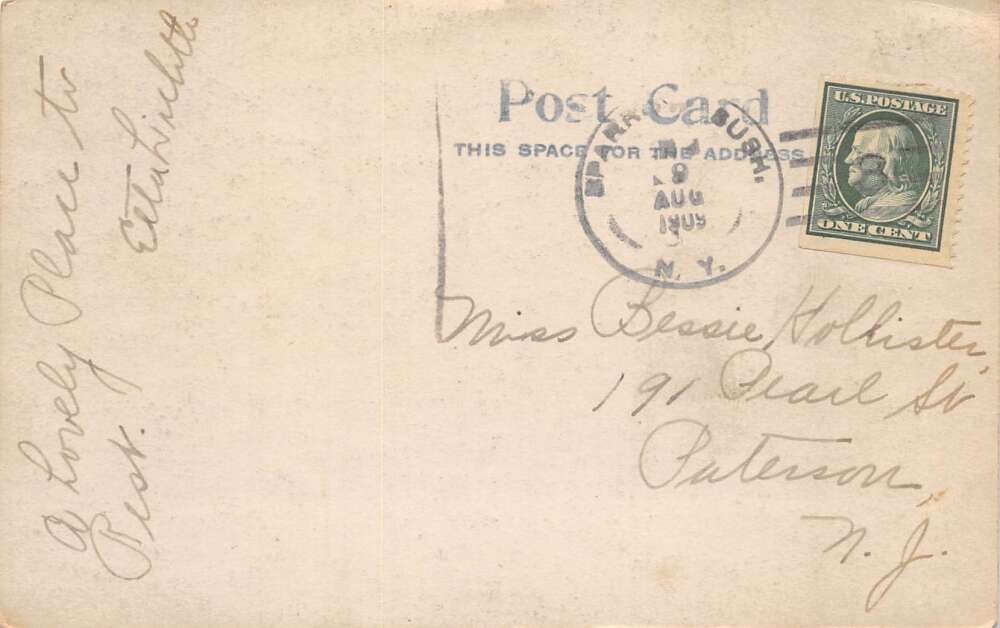 A Lovely Place to
Rest.
Etta
Post Card
THIS SPACE FOR THE ADDRESS
SPARROW BUSH,
9
AUG
1909
N. Y.
U.S. POSTAGE
ONE CENT
Miss Bessie Hollister,
191 Pearl St
Paterson,
N. J.